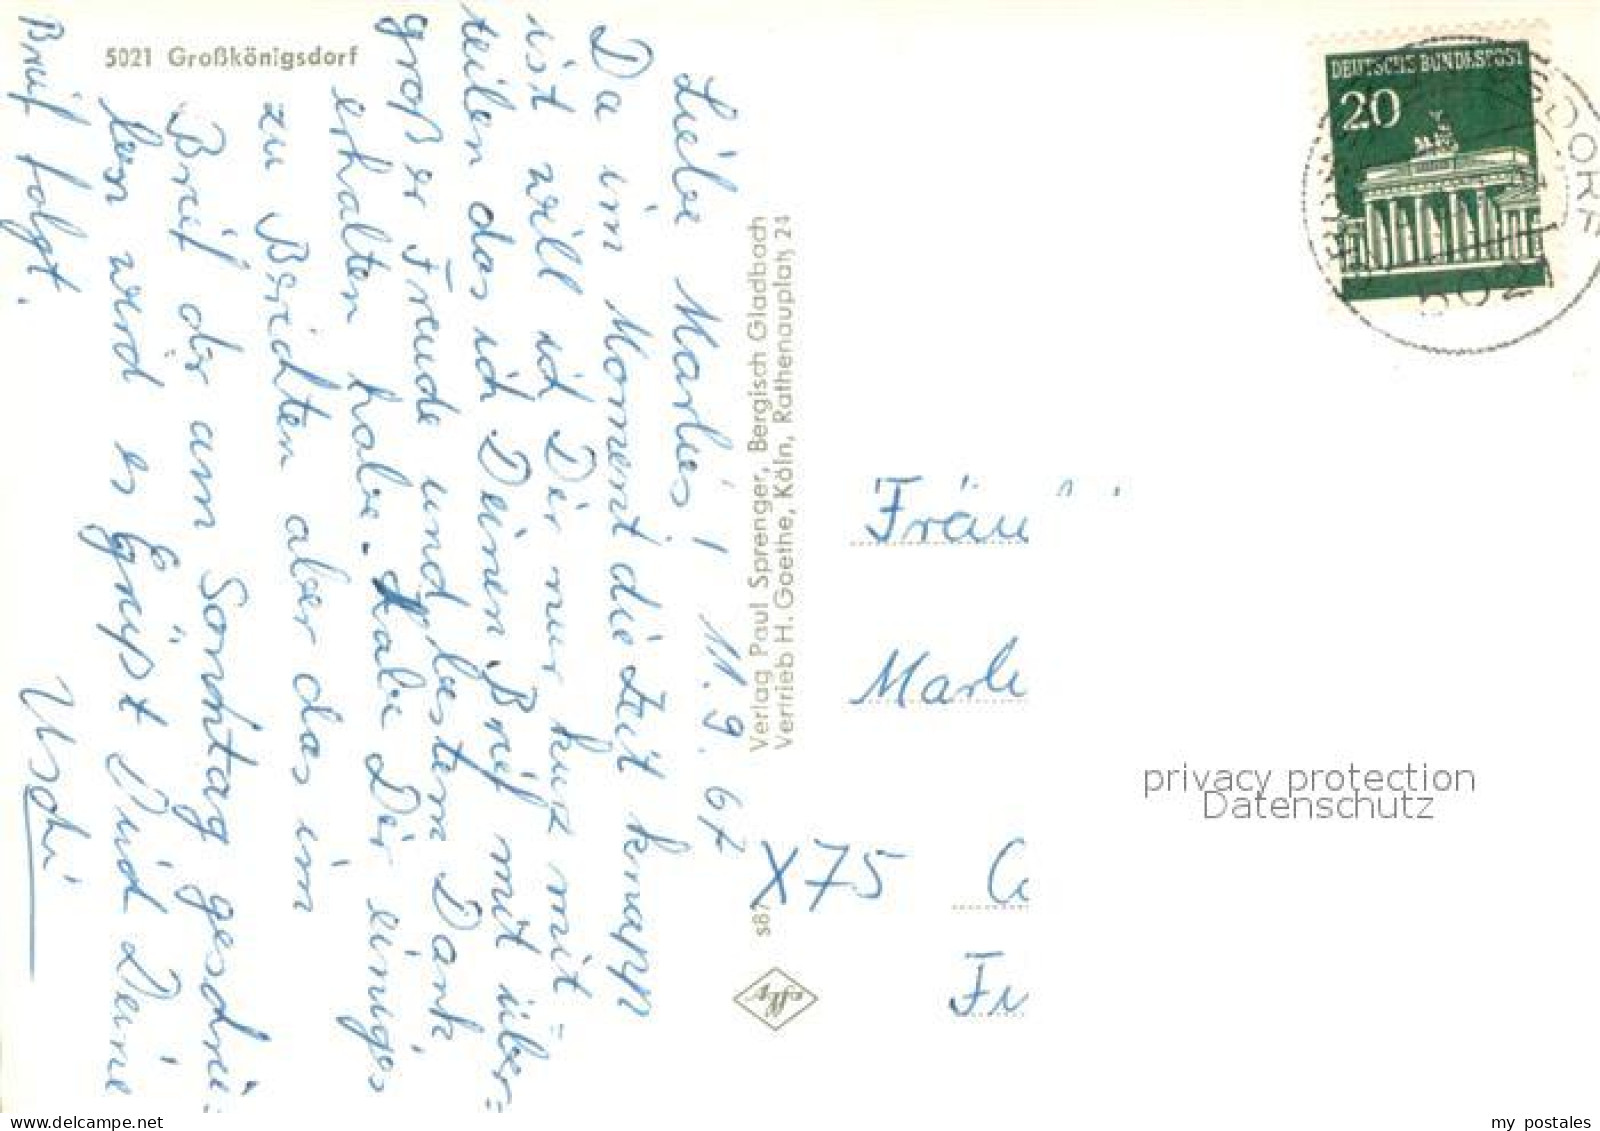 5021 Großkönigsdorf
Liebe Marlies! 11.9.67
Da im Moment die Zeit knapp
ist will ich Dir nur kurz mit=
teilen das ich Deinen Brief mit über=
großer Freude und bestem Dank
erhalten habe. Habe Dir einiges
zu Berichten aber das im
Brief der am Sonntag geschrie:
ben werd es Grüßt Dich Deine
Brief folgt. Uschi
Verlag Paul Sprenger, Bergisch Gladbach
Vertrieb H. Goethe, Köln, Rathenauplatz 24
DEUTSCHE BUNDESPOST
20
5021
Fräu
Marli
X75
Fr
privacy protection
Datenschutz
delcampe.net
my_postales